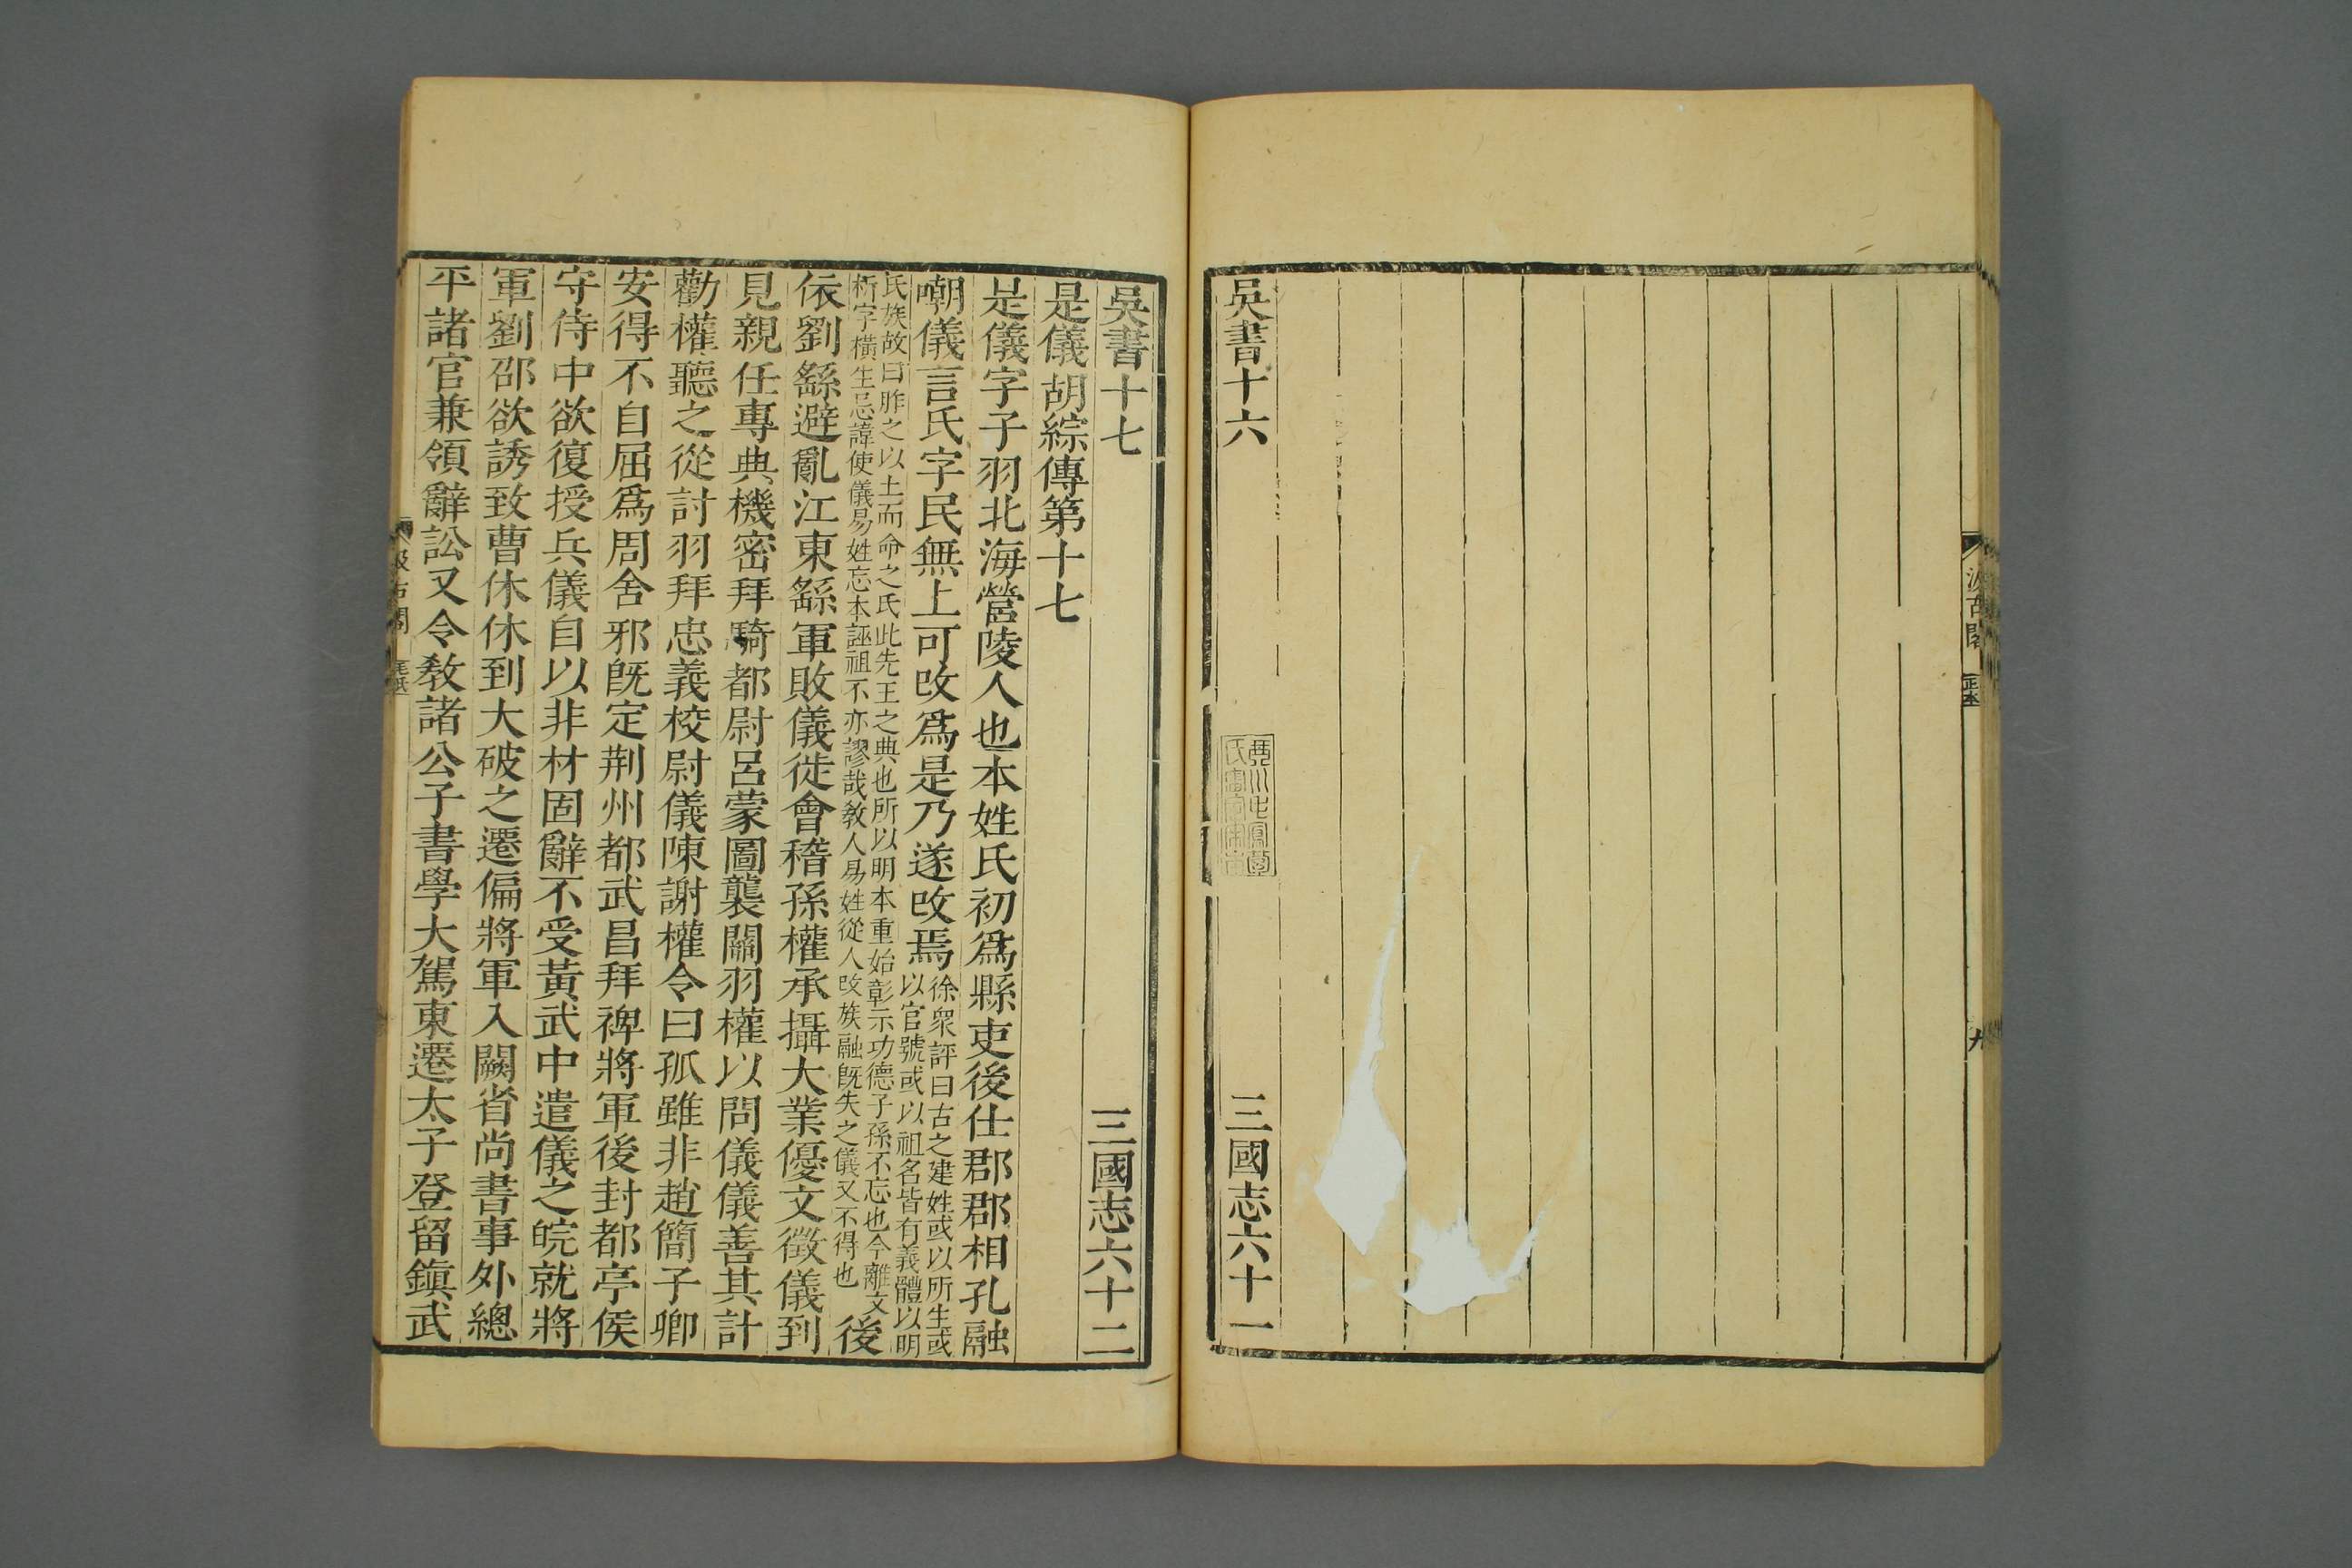 汲古閣
正本
九
吳書十六 三國志六十一
吳書十七 三國志六十二
是儀胡綜傳第十七
是儀字子羽北海營陵人也本姓氏初爲縣吏後仕郡郡相孔融
嘲儀言氏字民無上可改爲是乃遂改焉
徐衆評曰古之建姓或以所生或
以官號或以祖名皆有義體以明
氏族故曰胙之以土而命之氏此先王之典也所以明本重始彰示功德子孫不忘也今離文
析字橫生忌諱使儀易姓忘本誣祖不亦謬哉教人易姓從人改族融既失之儀又不得也
後
依劉繇避亂江東繇軍敗儀徙會稽孫權承攝大業優文徵儀到
見親任專典機密拜騎都尉呂蒙圖襲關羽權以問儀儀善其計
勸權聽之從討羽拜忠義校尉儀陳謝權令曰孤雖非趙簡子卿
安得不自屈爲周舍邪旣定荆州都武昌拜裨將軍後封都亭侯
守侍中欲復授兵儀自以非材固辭不受黃武中遣儀之皖就將
軍劉邵欲誘致曹休休到大破之遷偏將軍入闕省尚書事外總
平諸官兼領辭訟又令敎諸公子書學大駕東遷太子登留鎭武
汲古閣